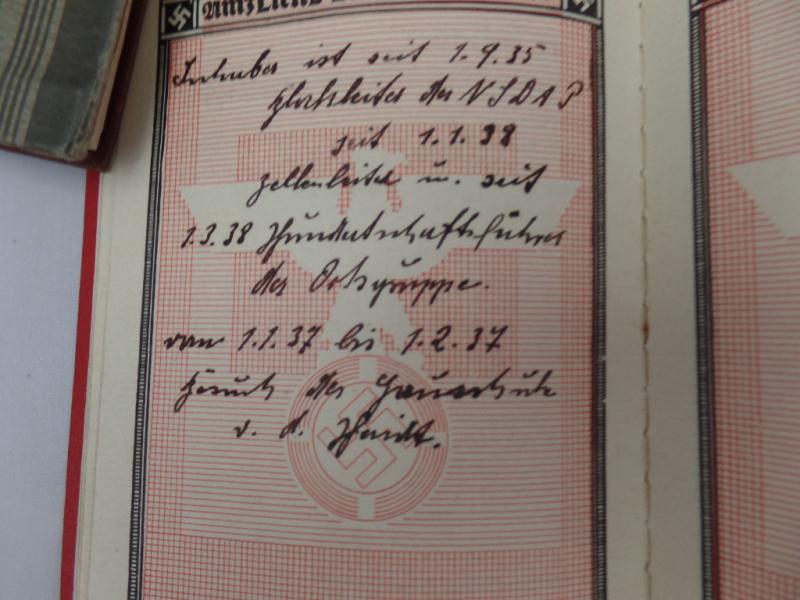 Amtliche
Inhaber ist seit 1.9.35
Blockleiter der NSDAP
seit 1.1.38
Zellenleiter u. seit
1.3.38 Hundertschaftsführer
der Ortsgruppe.
vom 1.1.37 bis 1.2.37
Besuch der Gauschule
v. d. Hardt.